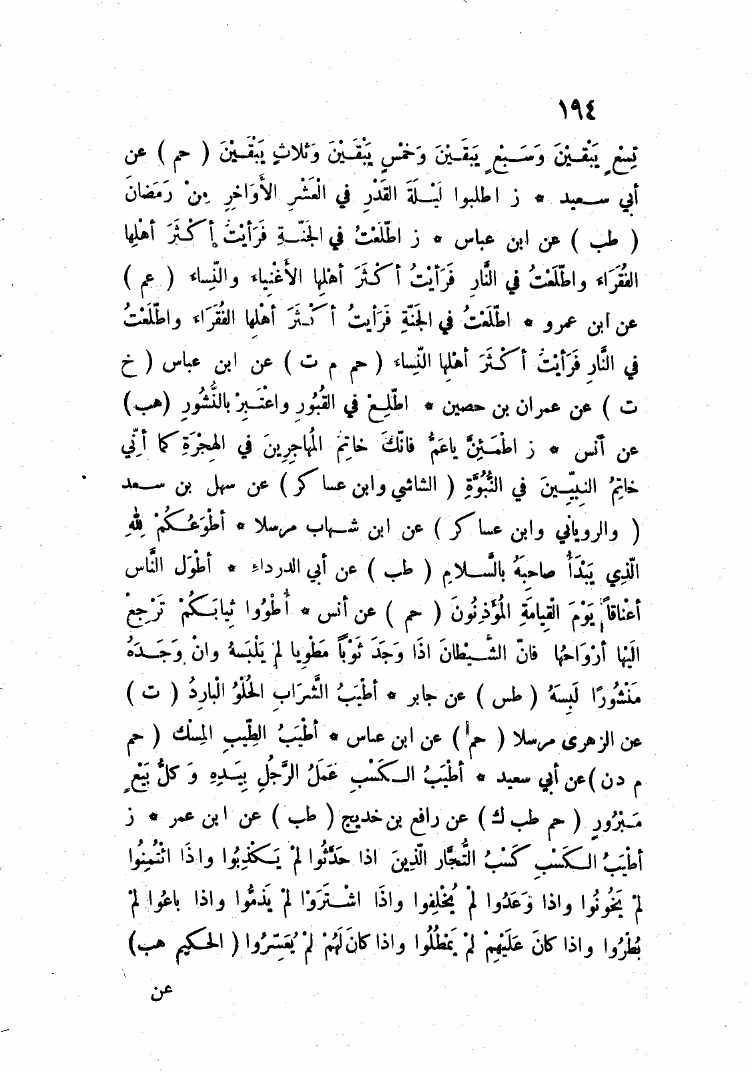 ١٩٤
تِسْعٍ يَبْقَيْنَ وَسَبْعٍ يَبْقَيْنَ وَخَمْسٍ يَبْقَيْنَ وَثَلَاثٍ يَبْقَيْنَ ( حم ) عن
أبي سعيد * ز اطلبوا لَيْلَةَ القَدْرِ في الْعَشْرِ الأَوَاخِرِ مِنْ رَمَضَانَ
( طب ) عن ابن عباس * ز اطَّلَعْتُ في الجَنَّةِ فَرَأَيْتُ أَكْثَرَ أَهْلِها
الفُقَرَاءَ واطَّلَعْتُ في النَّارِ فَرَأَيْتُ أَكْثَرَ أَهْلِها الأَغْنِياءَ والنِّساءَ ( عم )
عن ابن عمرو * اطَّلَعْتُ في الجَنَّةِ فَرَأَيتُ أَكْثَرَ أَهْلِها الفُقَرَاءَ واطَّلَعْتُ
في النَّارِ فَرَأَيْتُ أَكْثَرَ أَهْلِها النِّساءَ ( حم م ت ) عن ابن عباس ( خ
ت ) عن عمران بن حصين * اطَّلِعْ في القُبُورِ واعْتَبِرْ بالنُّشُورِ (هب)
عن أنس * ز اطْمَئِنَّ ياعَمُّ فانَّكَ خاتِمُ المُهاجِرِينَ في الهِجْرَةِ كما أنِّي
خاتِمُ النَّبِيِّينَ في النُّبُوَّةِ ( الشاشي وابن عساكر ) عن سهل بن سعد
( والروياني وابن عساكر ) عن ابن شهاب مرسلا * أطْوَعُكُمْ لِلهِ
الَّذِي يَبْدَأُ صاحِبَهُ بالسَّلامِ ( طب ) عن أبي الدرداء * أطْوَلُ النَّاسِ
أعْناقاً يَوْمَ القِيامَةِ المُؤَذِّنُونَ ( حم ) عن أنس * أُطْوُوا ثِيابَكُمْ تَرْجِعْ
الَيْها أرْوَاحُها فانَّ الشَّيْطانَ اذَا وَجَدَ ثَوْبًا مَطْوِيا لمْ يَلْبَسهُ وانْ وَجَدَهُ
مَنْشُورًا لَبِسَهُ ( طس ) عن جابر * أطْيَبُ الشَّرَابِ الحُلْوُ الْبارِدُ ( ت )
عن الزهرى مرسلا ( حم ) عن ابن عباس * أطْيَبُ الطِّيبِ المِسْكُ ( حم
م دن )عن أبي سعيد * أطْيَبُ الكَسْبِ عَمَلُ الرَّجُلِ بِيَدِهِ وَكلُّ بَيْعٍ
مَبْرُورٍ ( حم طب ك ) عن رافع بن خديج ( طب ) عن ابن عمر * ز
أطْيَبُ الكَسْبِ كَسْبُ التُّجَّارِ الَّذِينَ اذا حَدَّثُوا لمْ يَكْذِبُوا واذَا ائْتُمِنُوا
لمْ يَخُونُوا واذا وَعَدُوا لمْ يُخْلِفوا واذَا اشْتَرَوْا لمْ يَذُمُّوا واذا باعُوا لمْ
يُطْرُوا واذا كانَ عَلَيْهِمْ لمْ يَمْطُلُوا واذا كانَ لَهُمْ لمْ يُعَسِّرُوا ( الحكيم هب)
عن